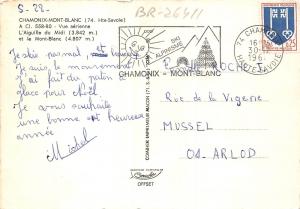 S-22-
BR-26411
CHAMONIX-MONT-BLANC (74. Hte-Savoie)
A CI. 558-80 - Vue aérienne
L'Aiguille du Midi (3.842 m)
et le Mont-Blanc (4.807 m)
SKI
ALPINISME
CHAMONIX - MONT-BLANC
CHAM
16
30
196
HAUTE SAVOIE
Je skie pas mal, et
Je suis le mouvement
J'ai fait du patin
glace pour Noël.
Je vous souhaite
une bonne et heureuse
année
Michel
ROCHE
Rue de la Vigerie
MUSSEL
01. ARLOD
OFFSET